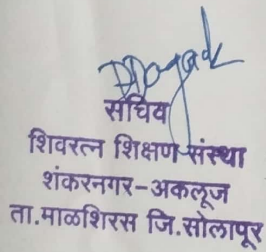 सचिव
शिवरत्न शिक्षण संस्था
शंकरनगर-अकलूज
ता.माळशिरस जि.सोलापूर